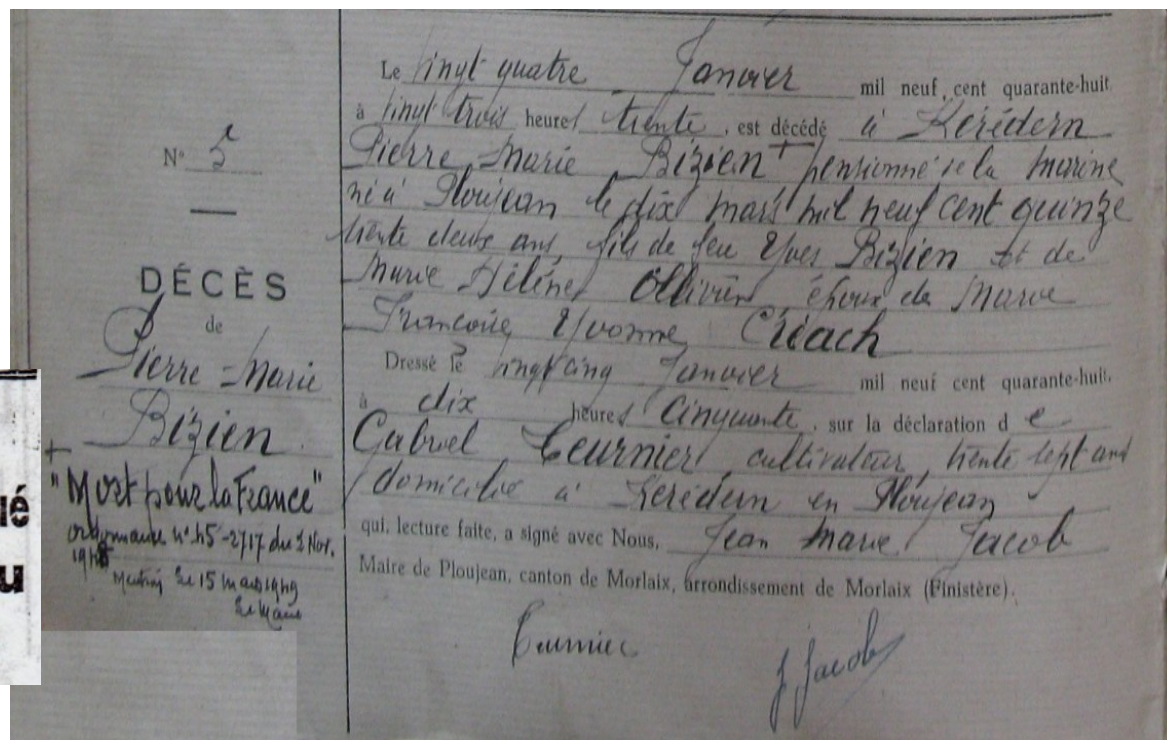 N° 5
DÉCÈS
de
Pierre-Marie
Bizien
+
"Mort pour la France"
ordonnance n° 45-2717 du 2 Nov.
1945
Mention le 15 mars 1949
Le Maire
lé
u
Le vingt quatre Janvier mil neuf cent quarante-huit
à vingt trois heures trente, est décédé à Kérédern
Pierre Marie Bizien + pensionné de la marine
né à Ploujean le dix mars mil neuf cent quinze
trente deux ans, fils de feu Yves Bizien et de
Marie Hélène Ollivier, époux de Marie
Françoise Yvonne Créach
Dressé le vingt cinq Janvier mil neuf cent quarante-huit,
à dix heures cinquante, sur la déclaration de
Gabriel Teurnier, cultivateur, trente sept ans
domicilié à Kérédern en Ploujean
qui, lecture faite, a signé avec Nous, Jean Marie Jacob
Maire de Ploujean, canton de Morlaix, arrondissement de Morlaix (Finistère).
Teurnier
J Jacob